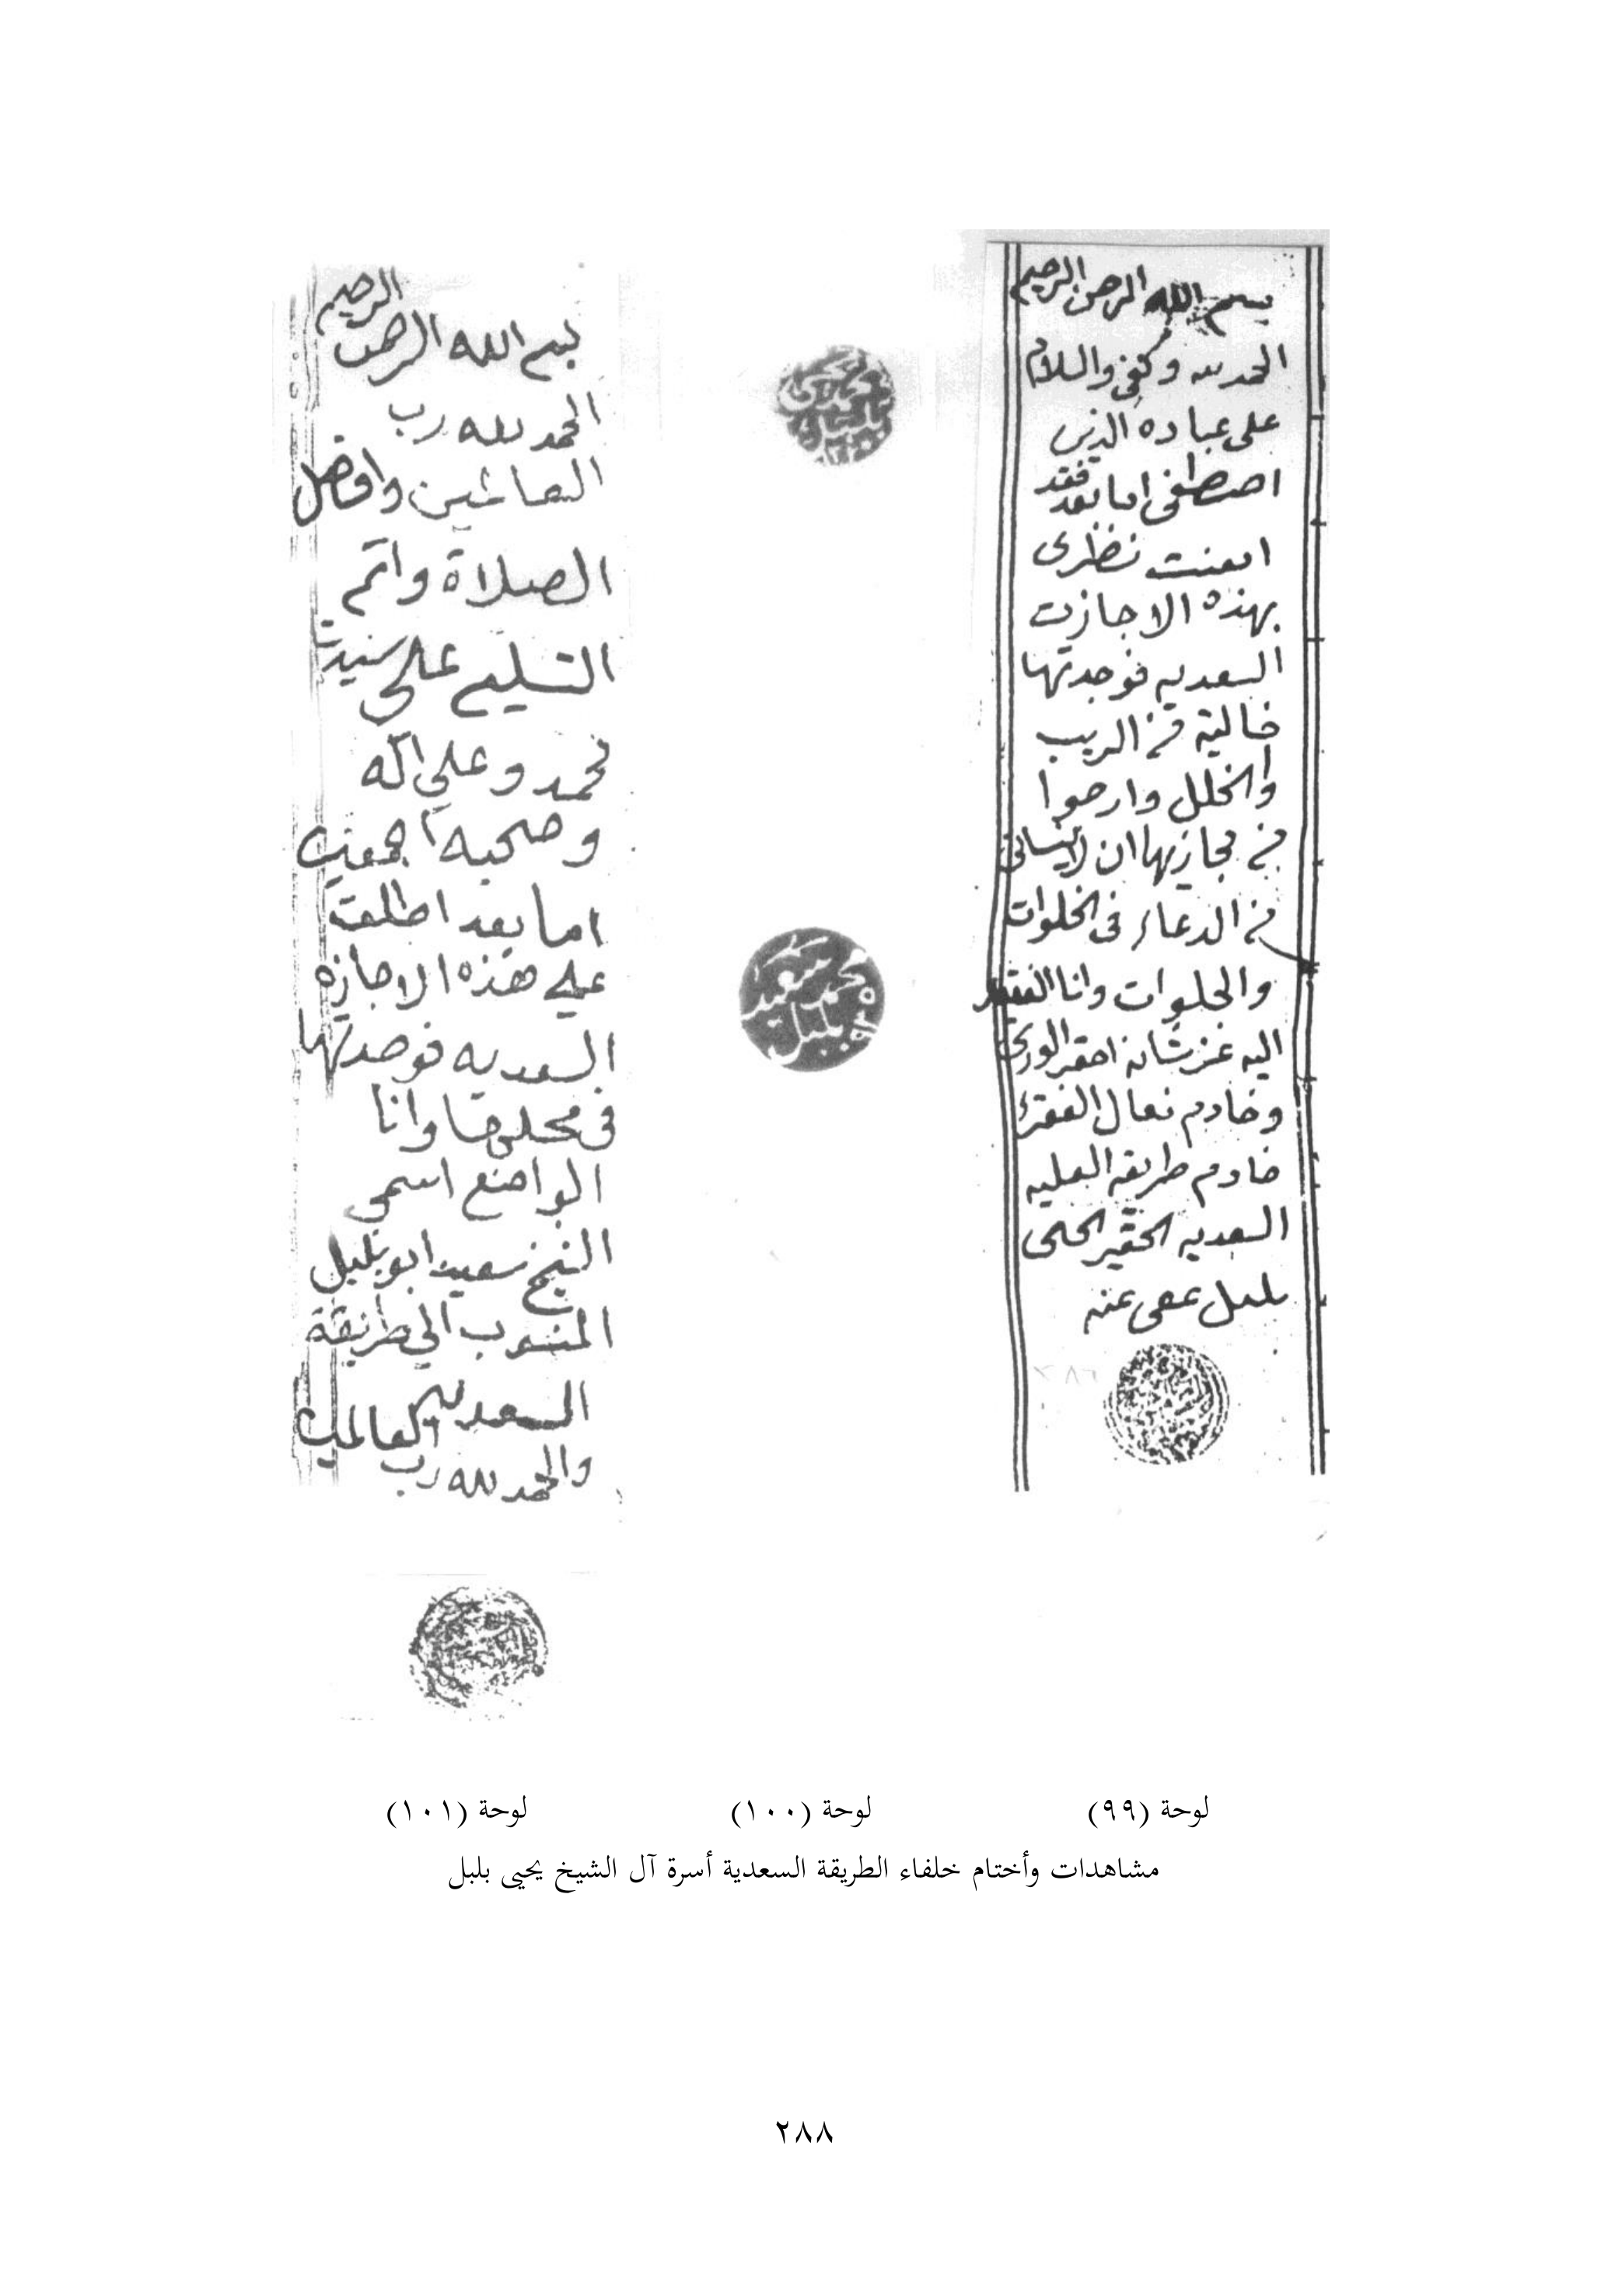 بسم الله الرحمن الرحيم
الحمد لله وكفى والسلام
على عباده الذين
اصطفى اما بعد فقد
امعنت نظرى
بهذه الاجازت
السعديه فوجدتها
خالية من الريب
والخلل وارجوا
من مجازيها ان لا ينسانى
من الدعاء فى الخلوات
والجلوات وانا الفقير
اليه عز شانه احقر الورى
وخادم نعال الفقرء
خادم طريقه العليه
السعديه الحقير
بلبل عفى عنه
محمد سعيد
بلبل
بسم الله الرحمن الرحيم
الحمد لله رب
العالمين وافضل
الصلاة واتم
التسليم على سيدنا
محمد وعلى آله
وصحبه اجمعين
اما بعد اطلعت
على هذه الاجازه
السعديه فوجدتها
فى محلها وانا
الواضع اسمى
الشيخ سعيد ابو بلبل
المنسوب الي طريقة
السعديه
والحمد لله رب العالمين
لوحة (٩٩)
لوحة (١٠٠)
لوحة (١٠١)
مشاهدات وأختام خلفاء الطريقة السعدية أسرة آل الشيخ يحيى بلبل
٢٨٨